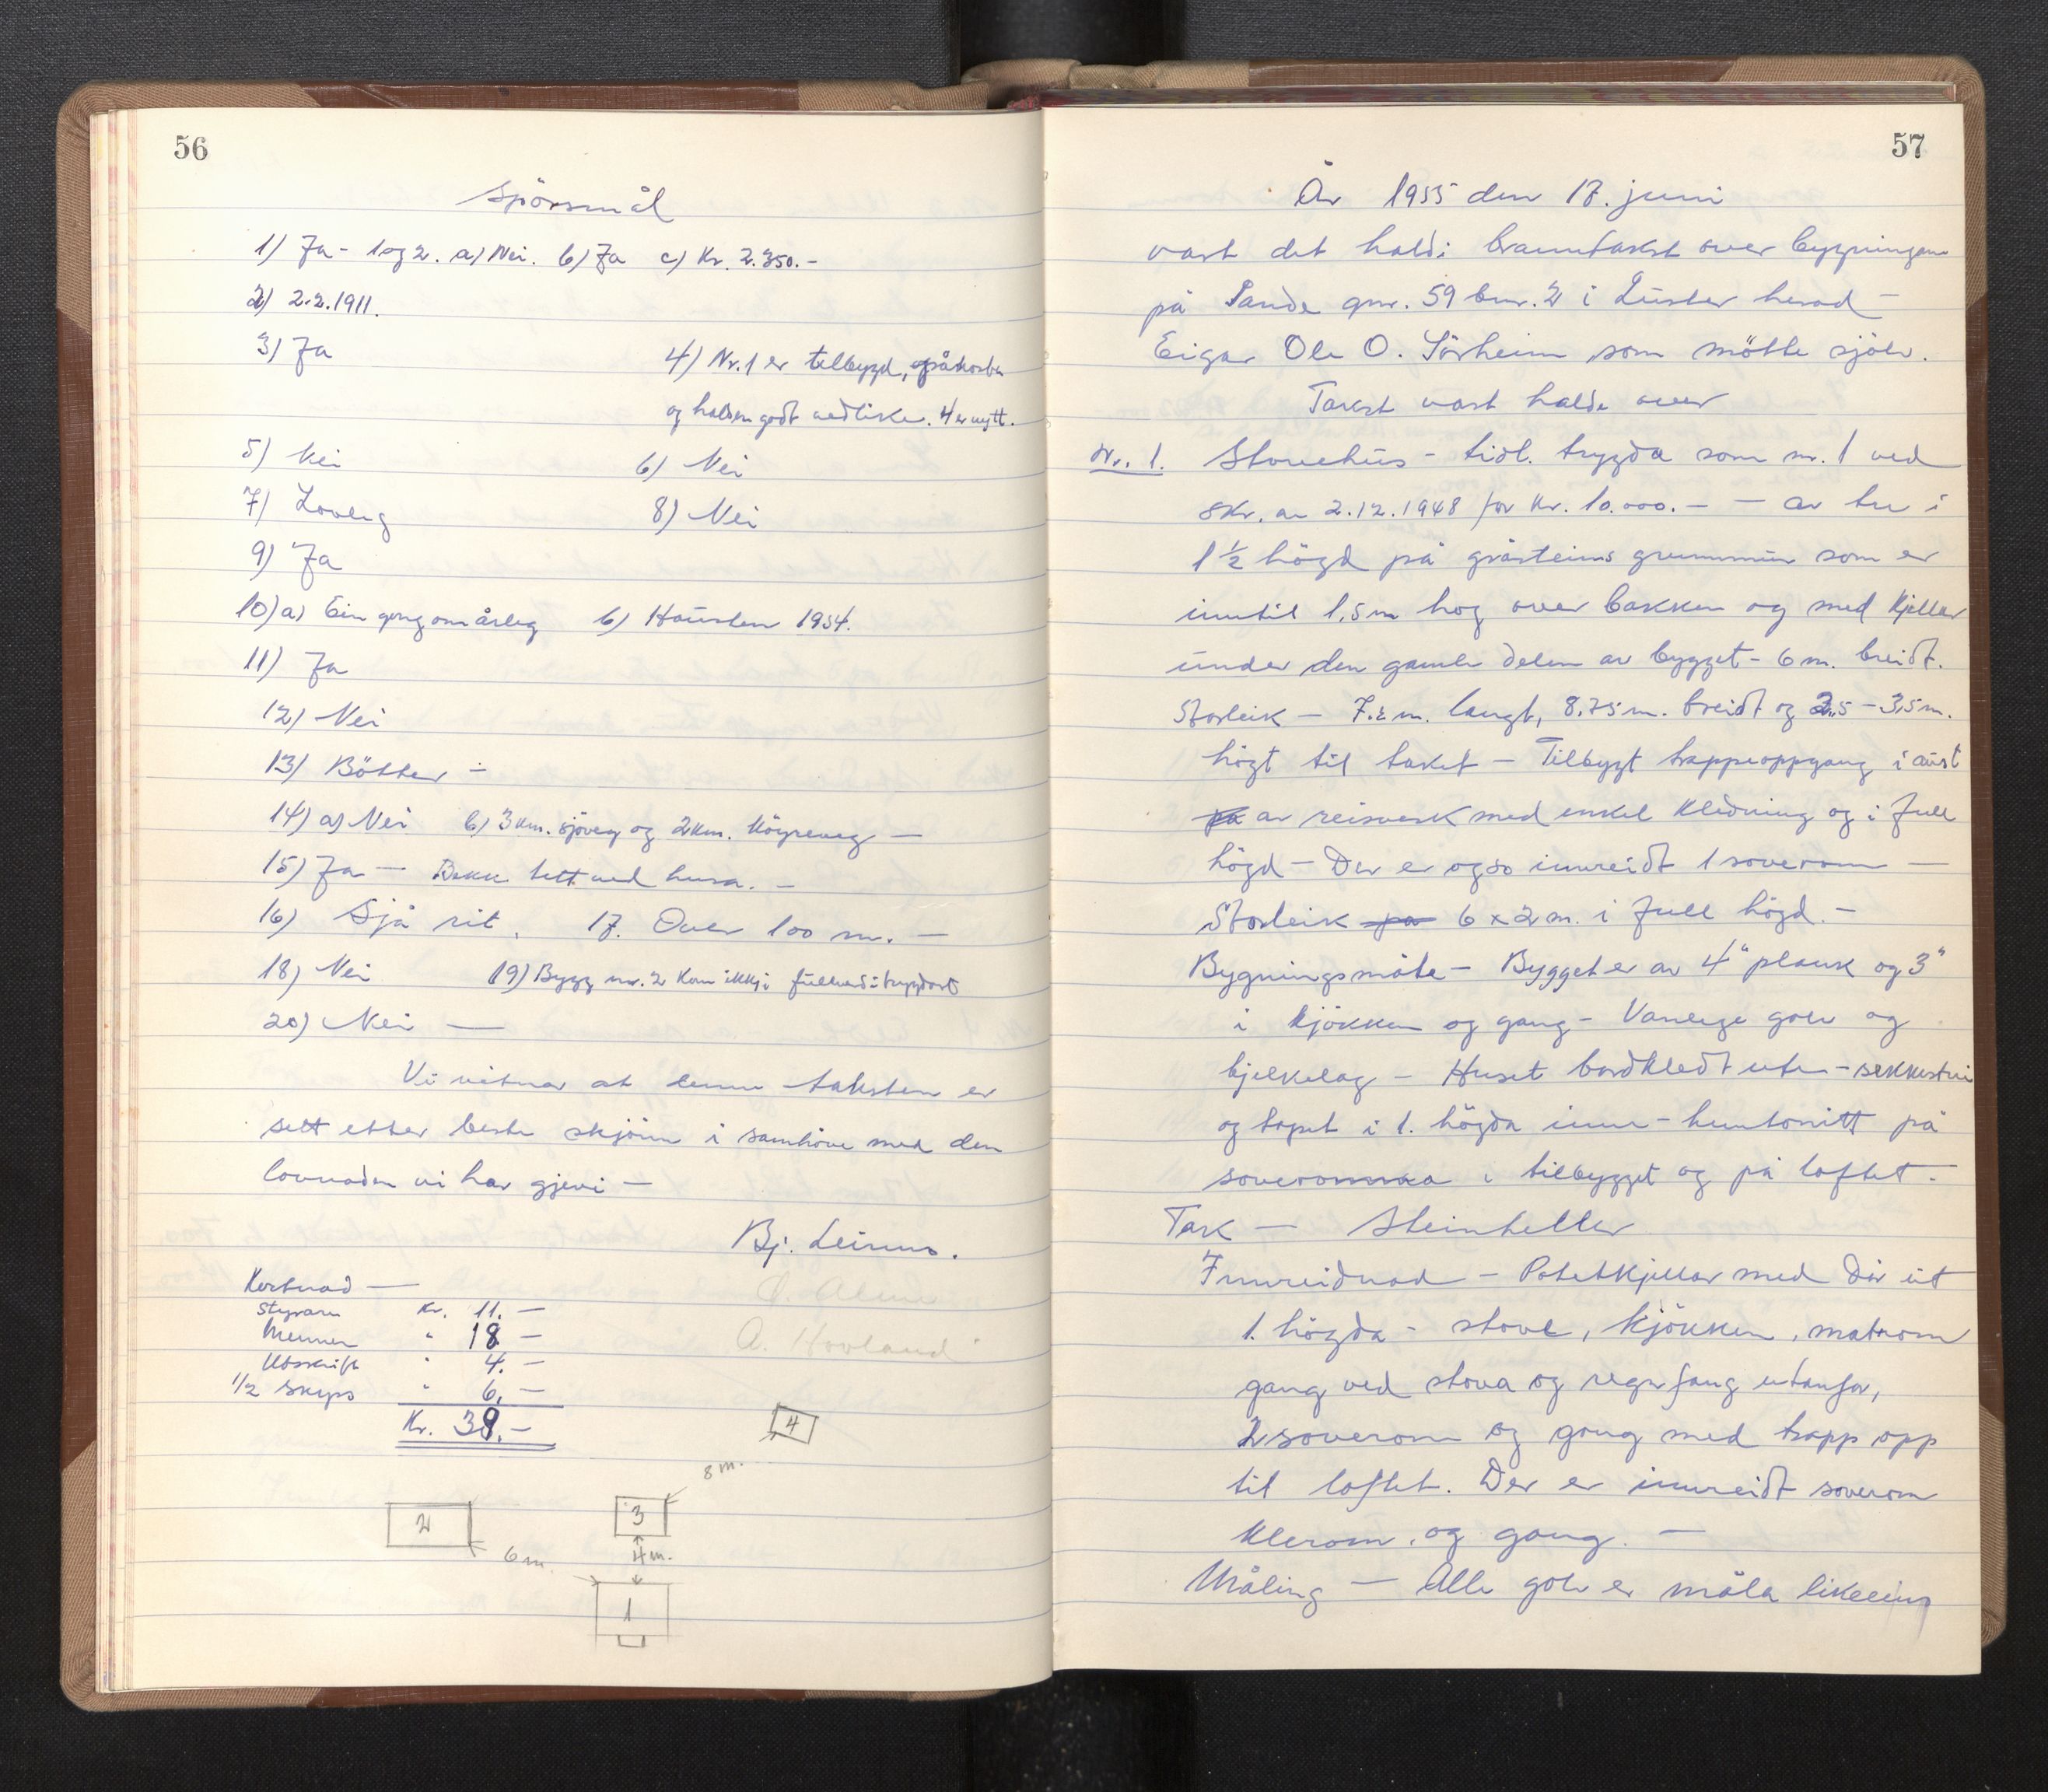 56
Spörsmål
1) Ja - 1 og 2. a) Nei. b) Ja c) Kr. 2.350.-
2) 2.2.1911.
3) Ja
4) Nr. 1 er tilbygd, påkosta
og halden godt vedlike. 4 er nytt.
5) Nei 6) Nei
7) Lovleg 8) Nei
9) Ja
10) a) Ein gong om årleg b) Hausten 1954.
11) Ja
12) Nei
13) Bötter -
14) a) Nei b) 3 km. sjöveg og 2 km. köyreveg -
15) Ja - Bekk tett ved husa. -
16) Sjå rit. 17. Over 100 m. -
18) Nei 19) Bygg nr. 2 kom ikkje fullverditrygdast
20) Nei -
Vi vitnar at denne taksten er
sett etter beste skjönn i samhöve med den
lovnaden vi har gjevi -
Bj. Leirmo.
A. Hovland
Kostnad -
Styraren Kr. 11. -
Mennen " 18 -
Utskrift " 4. -
1/2 Skyss " 6. -
Kr. 39.-
4
8 m.
2
3
6 m.
4 m.
1
57
År 1955 den 17. juni
vart det haldi branntakst over bygningane
på Sande gnr. 59 bnr. 2 i Luster herad -
Eigar Ole O. Sörheim som mötte sjölv.
Takst vart halde over
Nr. 1. Stovehus - tidl. trygda som nr. 1 ved
skr. av 2.12.1948 for kr. 10.000.- - av tre i
1 1/2 högd på gråsteins grunnmur som er
inntil 1,5 m hog over bakken og med kjellar
under den gamle delen av bygget - 6 m. breidt.
Storleik - 7.2 m. langt, 8.75 m. breidt og 2,5 - 3,5 m.
högt til taket - Tilbygt trappeoppgang i aust
på av reisverk med enkel kledning og i full
högd - Der er ogso innreidt 1 soverom -
Storleik på 6 x 2 m. i full högd. -
Bygningsmåte - Bygget er av 4" plank og 3"
i kjökken og gang - Vanlege golv og
bjelkelag - Huset bordkledt ute - sekkestrie
og tapet i 1. högda inne - huntonitt på
soveromma i tilbygget og på loftet -
Tak - Steinheller
Innreidnad - Potetkjellar med dör ut
1. högda - stove, kjökken, matrom
gang ved stova og regnfang utanfor,
2 soverom og gang med trapp opp
til loftet. Der er innreidt soverom
klerom. og gang. -
Måling - Alle golv er måla likeeins